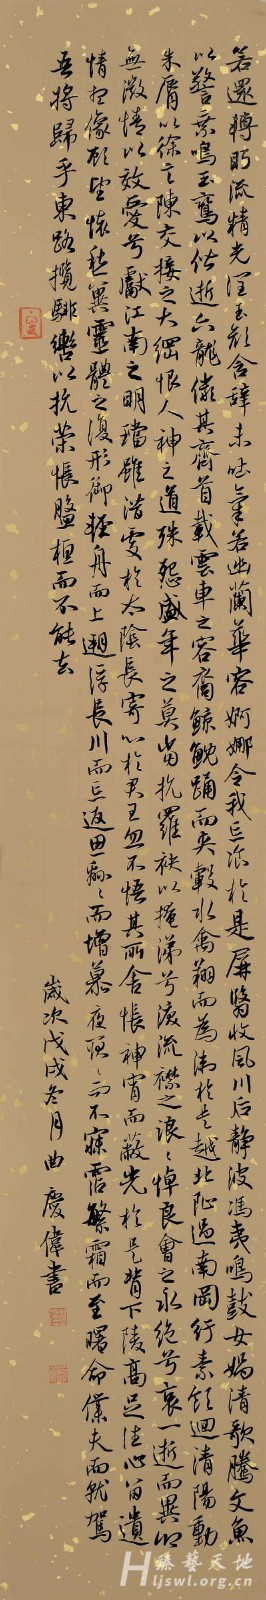 若還轉眄流精光潤玉顏含辭未吐氣若幽蘭華容婀娜令我忘飡於是屏翳收風川后靜波馮夷鳴鼓女媧清歌騰文魚
以警乘鳴玉鸞以偕逝六龍儼其齊首載雲車之容裔鯨鯢踊而夾轂水禽翔而為衛於是越北沚過南岡紆素領迴清陽動
朱脣以徐言陳交接之大綱恨人神之道殊怨盛年之莫當抗羅袂以掩涕兮淚流襟之浪〻悼良會之永絕兮哀一逝而異鄉
無微情以效愛兮獻江南之明璫雖潛處於太陰長寄心於君王忽不悟其所舍悵神宵而蔽光於是背下陵高足往心留遺
情想像顧望懷愁冀靈體之復形御輕舟而上遡浮長川而忘返思綿〻而增慕夜耿〻而不寐霑繁霜而至曙命僕夫而就駕
吾將歸乎東路攬騑轡以抗策悵盤桓而不能去
歲次戊戌冬月曲慶偉書
臻藝天地
Hljswl.org.cn